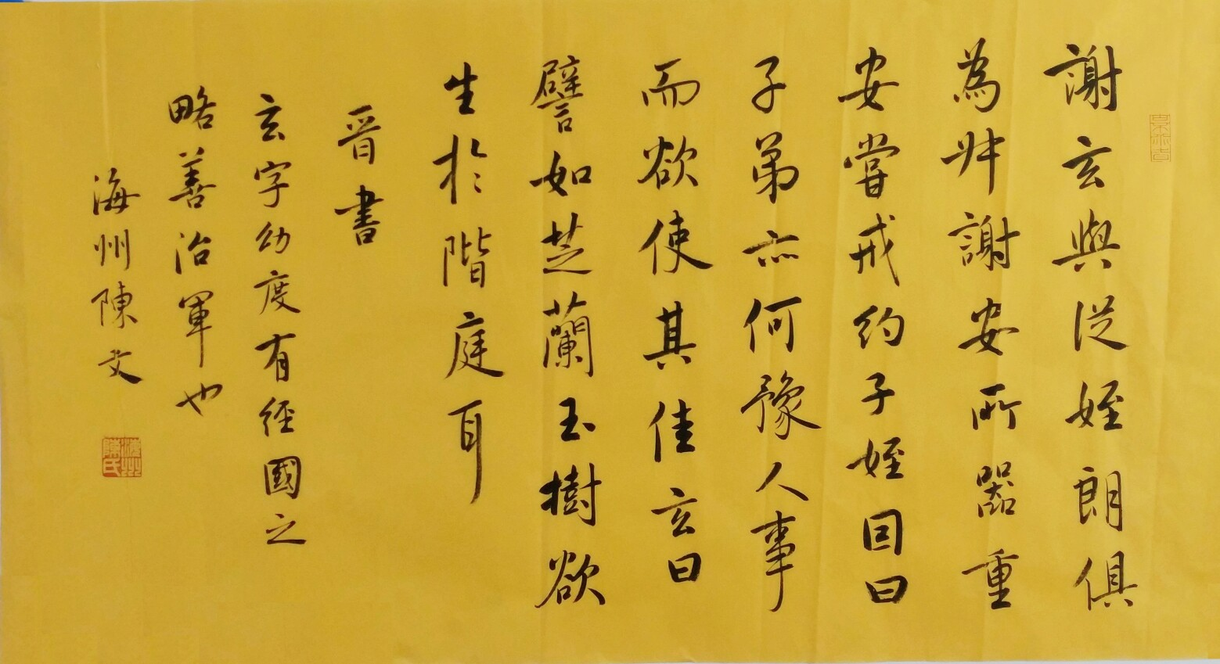 謝玄與從姪朗俱
為叔謝安所器重
安嘗戒約子姪因曰
子弟亦何豫人事
而欲使其佳玄曰
譬如芝蘭玉樹欲
生於階庭耳
晉書
玄字幼度有經國之
略善治軍也
海州陳文
海州陳氏